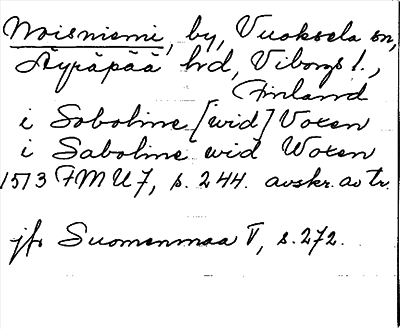 Noisniemi, by, Vuoksela sn,
Äyräpää hd, Viborgs l.,
Finland
i Soboline [wid] Voxen
i Saboline wid Woxen
1513 FMU 7, s. 244. avskr. av tr.
jfr Suomenmaa V, s. 272.